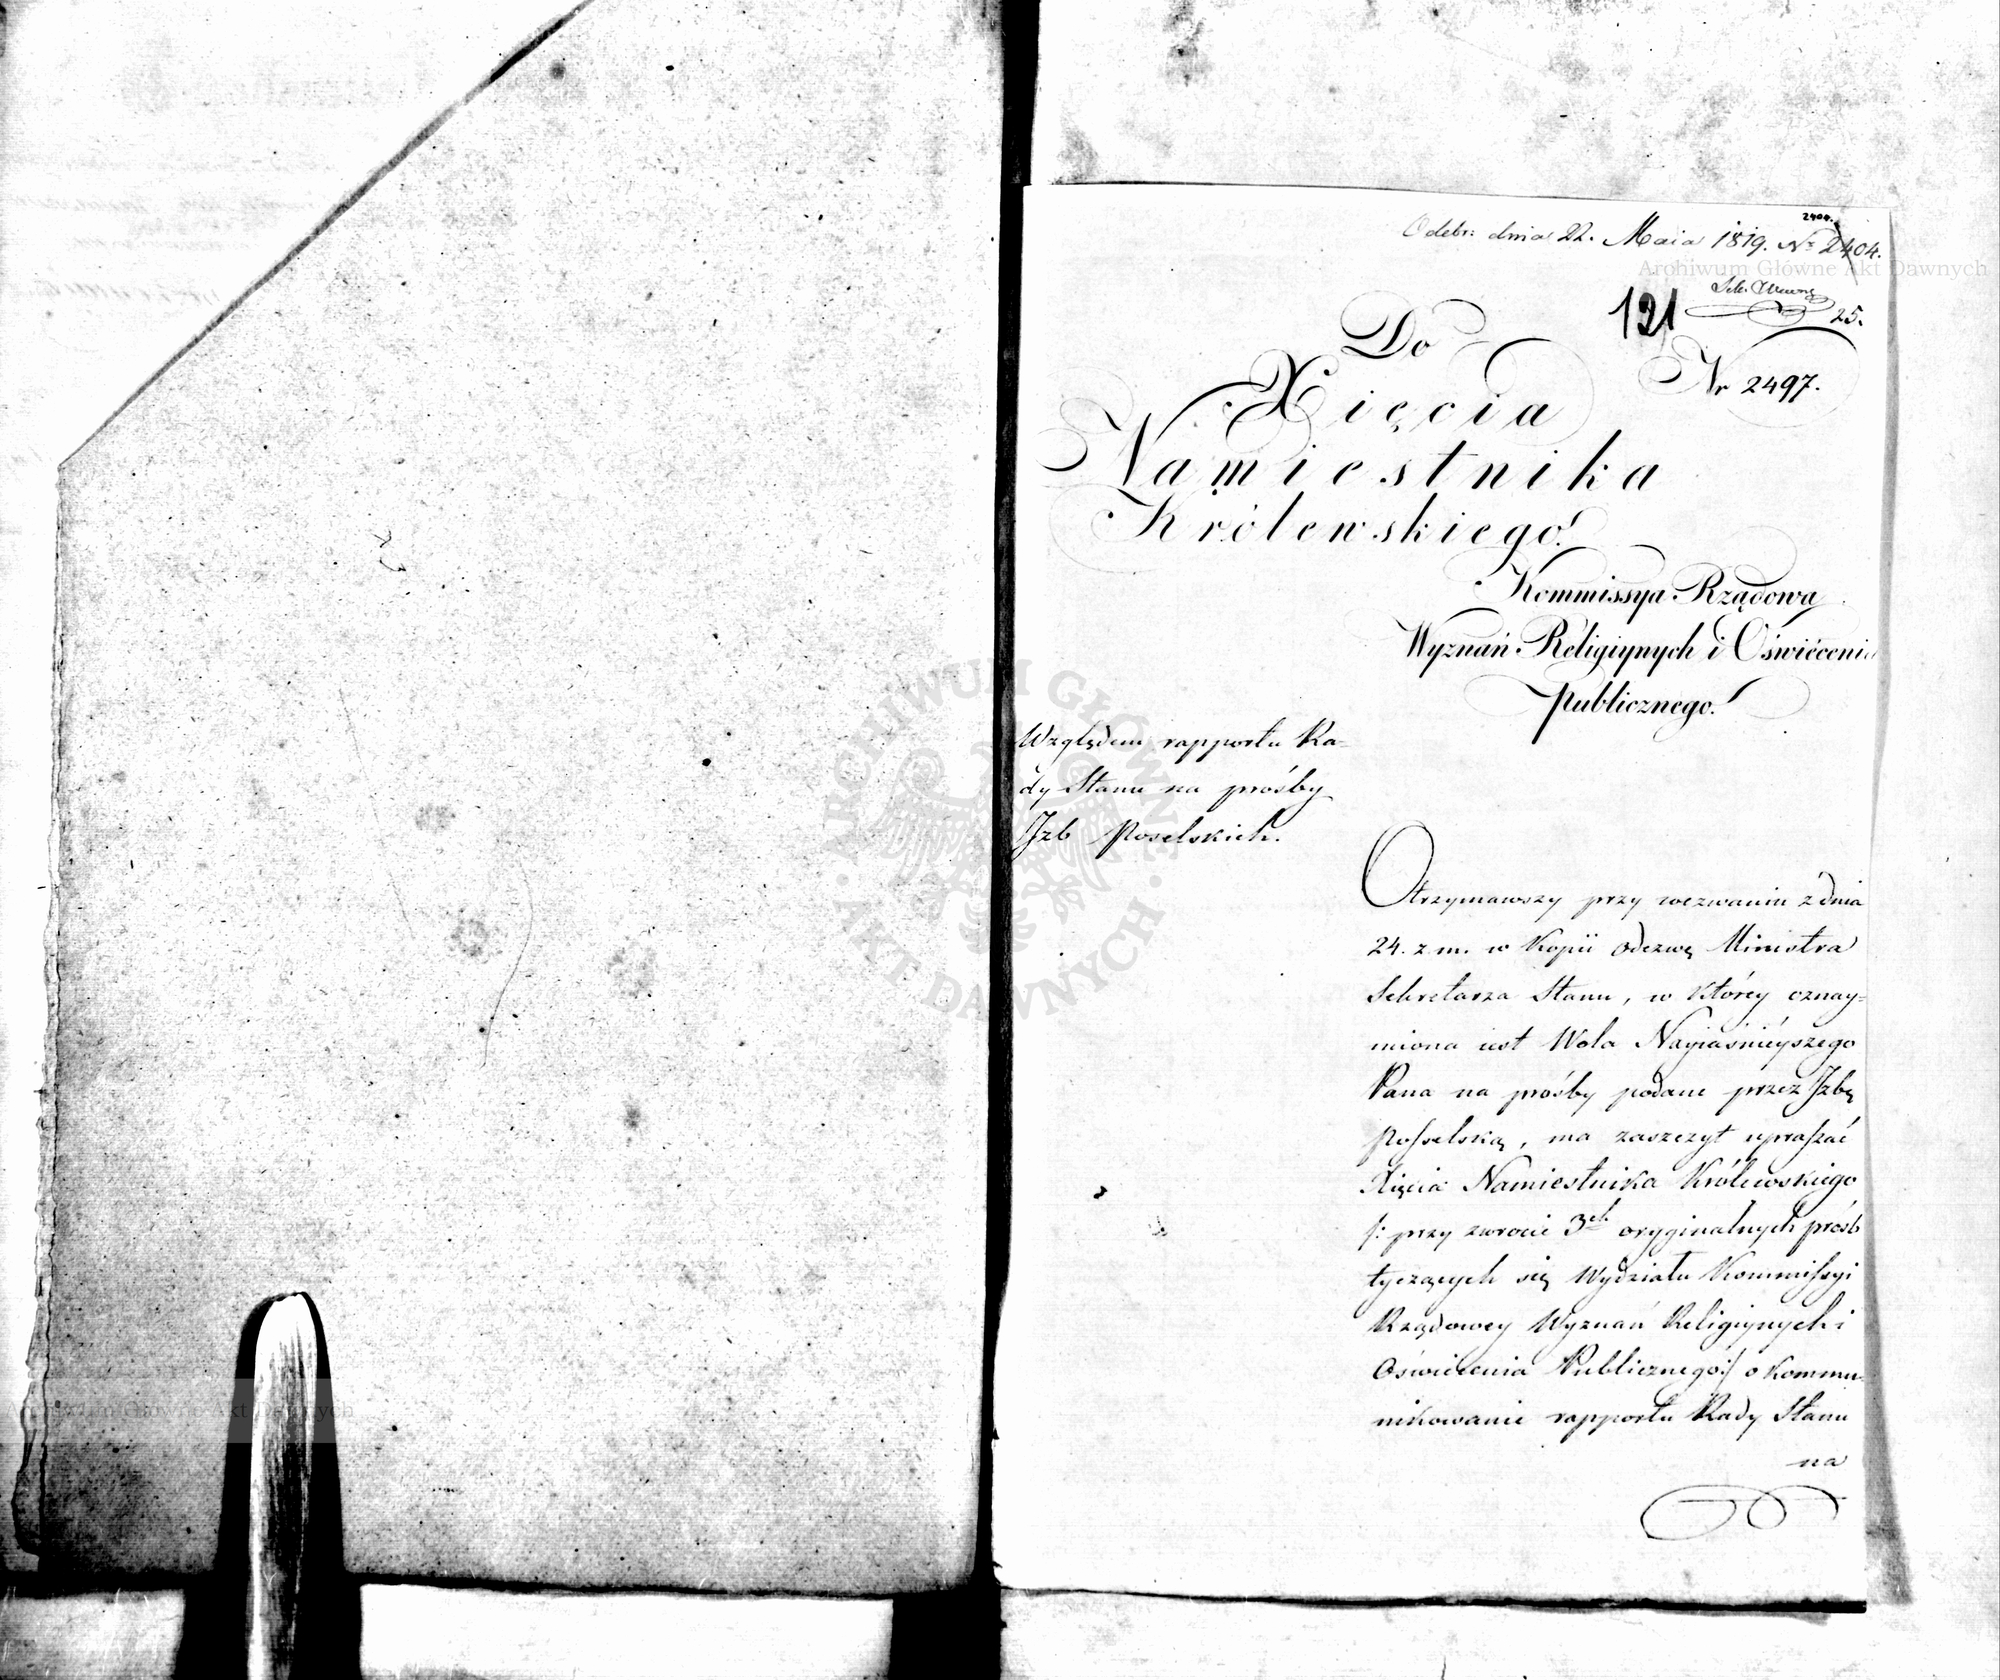 2404.
Odebr: dnia 22. Maia 1819. Nr 2404.
121
25.
Nr 2497.
Do
Xięcia
Namiestnika
Królewskiego!
Kommissya Rządowa
Wyznań Religiynych i Oświécenia
Publicznego!
Względem rapportu Ra-
dy Stanu na prośby
Jzb Poselskich.
Otrzymawszy przy wezwaniu z dnia
24. z. m. w Kopii odezwę Ministra
Sekretarza Stanu, w któréy oznay=
miona iest Wola Nayiaśnieyszego
Pana na prośby podane przez Jzbę
Posselską, ma zaszczyt upraszać
Xięcia Namiestnika Królewskiego
/: przy zwrocie 3ch oryginalnych prośb
tyczących się Wydziału Kommissyi
Rządowey Wyznań Religiynych i
Oświecenia Publicznego:/ o kommu-
nikowanie rapportu Rady Stanu
na
ARCHIWUM GŁÓWNE · AKT DAWNYCH ·
Archiwum Główne Akt Dawnych
Archiwum Główne Akt Dawnych